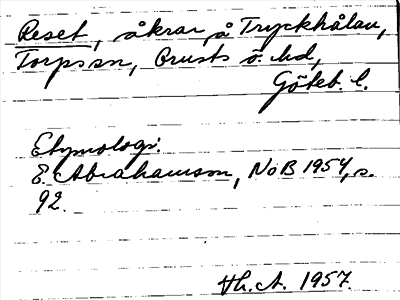 Reset, åkrar, å Tryckhålan,
Torps sn, Orusts ö. hd,
Göteb. l.
Etymologi:
E. Abrahamson, NoB 1954, s.
92.
Hh. A. 1957.